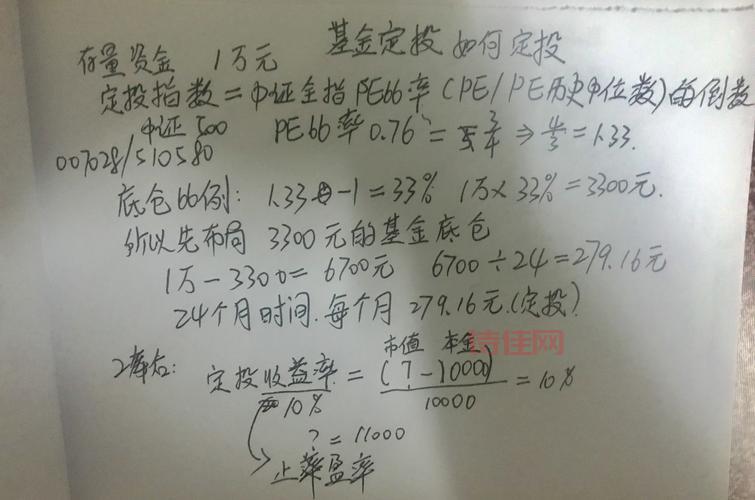 基金定投 如何定投
存量资金 1万元
定投指数=中证全指PE比率(PE/PE历史中位数)的倒数
中证500 PE比率0.76=3/4⇒4/3=1.33.
007028/510580
底仓比例: 1.33-1=33% 1万×33%=3300元.
所以先布局 3300元的基金底仓
1万-3300=6700元 6700÷24=279.16元
24个月时间.每个月 279.16元.(定投)
市值 本金
2年后: 定投收益率=(?-10000)/10000=10%
10%
?=11000
止盈率
诗佳网